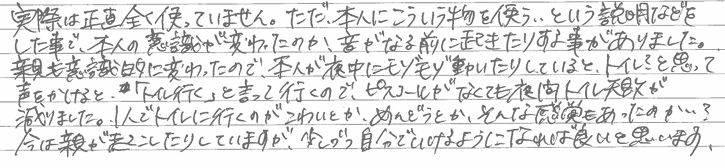 実際は正直全く使っていません。ただ、本人にこういう物を使う、、という説明などを
した事で、本人の意識が変わったのか、音がなる前に起きたりする事がありました。
親も意識的に変わったので、本人が夜中にモゾモゾ動いたりしていると、トイレ?と思って
声をかけると、「トイレ行く」と言って行くので、ピスコールがなくても夜間トイレ失敗が
減りました。1人でトイレに行くのがこわいとか、めんどうとか、そんな感覚もあったのか…?
今は親が起こしたりしていますが、少しずつ自分でいけるようになれば良いと思います。